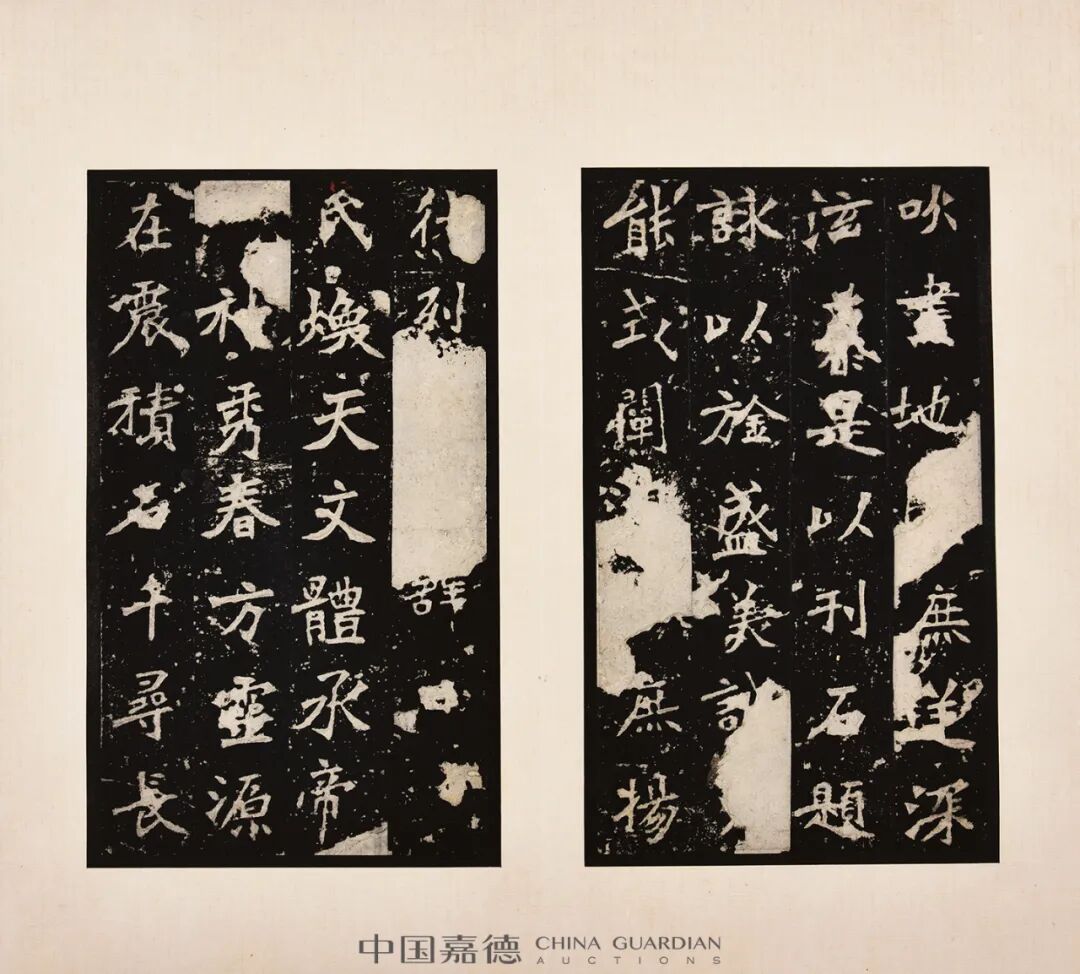 吠晝地庶深
泫慕是以刊石題
詠以旌盛美詎
能式闡庶揚
列
氏煥天文體承帝
神秀春方靈源
在震積石千尋長
中国嘉德 CHINA GUARDIAN AUCTIONS